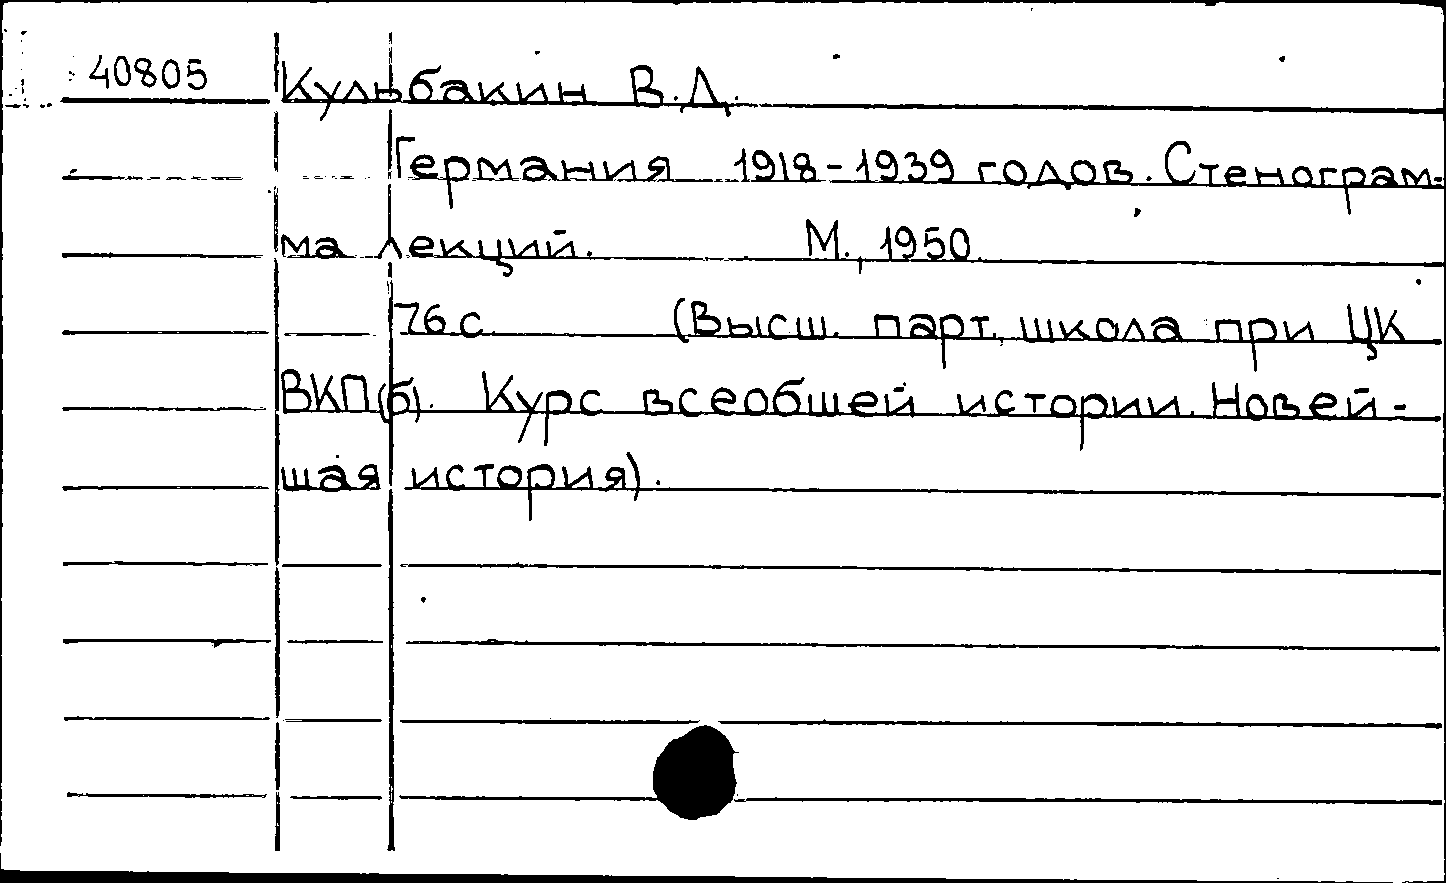 40805 Кульбакин В.Д.
Германия 1918-1939 годов. Стенограм-
ма лекций. М., 1950.
76 с. (Высш. парт. школа при ЦК
ВКП(б). Курс всеобщей истории. Новей-
шая история).